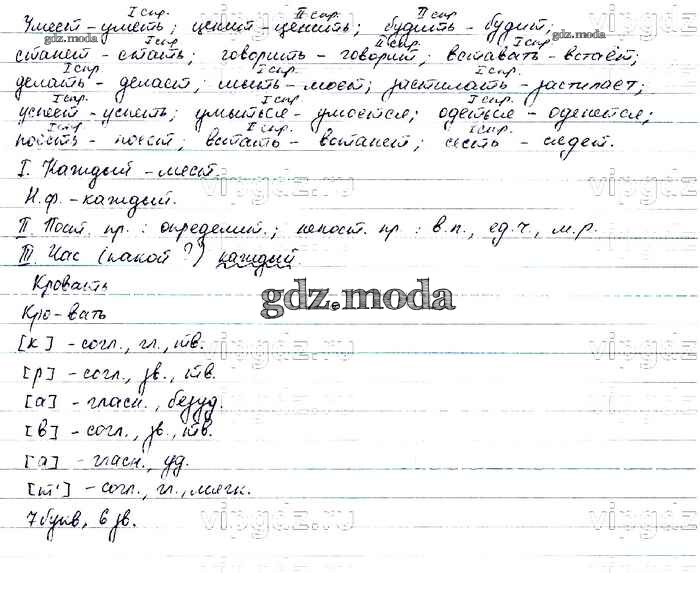 I спр. II спр. II спр.
Умеет - уметь; ценит - ценить; будить - будит;
I спр. II спр. I спр.
станет - стать; говорить - говорит; вставать - встаёт;
I спр. I спр. I спр.
делать - делает; мыть - моет; застилать - застилает;
I спр. I спр. I спр.
успеет - успеть; умыться - умоется; одеться - оденется;
I спр. I спр. I спр.
поесть - поест; встать - встанет; сесть - сядет.
I. Каждый - мест.
Н.ф. - каждый.
II. Пост. пр.: определит.; непост. пр: в.п., ед.ч., м.р.
III. Час (какой?) каждый.
Кровать
Кро-вать
[к] - согл., гл., тв.
[р] - согл., зв., тв.
[а] - гласн., безуд.
[в] - согл., зв., тв.
[а] - гласн., уд.
[т'] - согл., гл., мягк.
7 букв, 6 зв.
gdz.moda
gdz.moda
gdz.moda
vipgdz.ru
vipgdz.ru
vipgdz.ru
vipgdz.ru
vipgdz.ru
vipgdz.ru
vipgdz.ru
vipgdz.ru